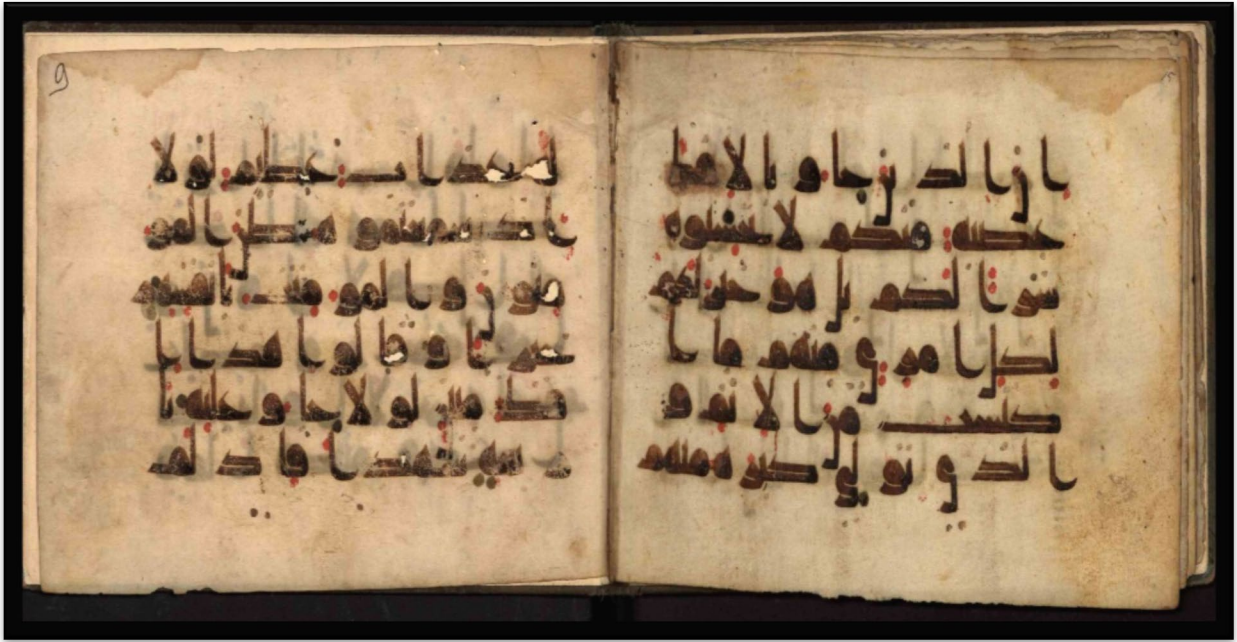 ان الذين جاو بالافك
عصبة منكم لا تحسبوه
شرا لكم بل هو خير لكم
لكل امرى منهم ما ا
كتسب من الاثم و
الذى تولى كبره منهم
9
له عذاب عظيم لولا
اذ سمعتموه ظن المو
منون والمومنت بانفسهم
خيرا وقالوا هذا ا
فك مبين لولا جاو عليه با
ربعة شهدا فاذ لم